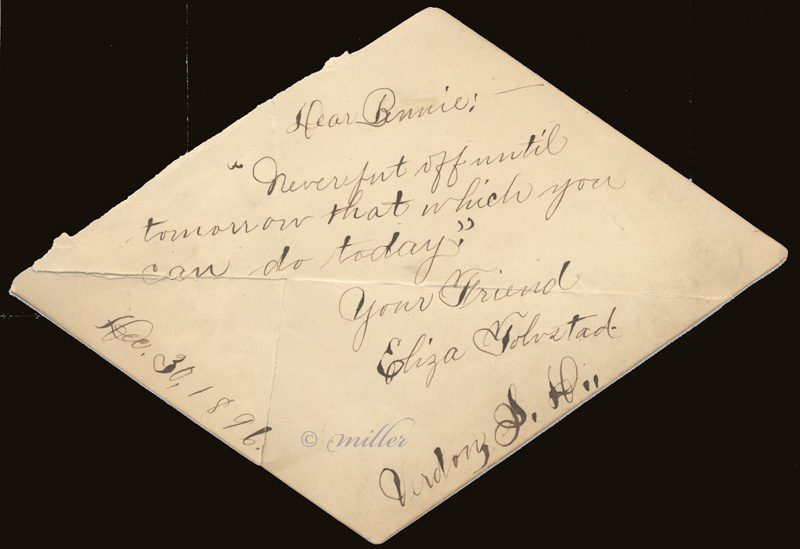 Dear Bennie:
"Never put off until
tomorrow that which you
can do today."
Your Friend
Eliza Tolvstad.
Dec. 30, 1896.
Verdon, S. D.,,
© miller